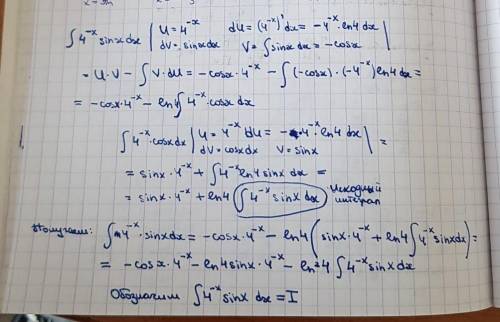 ∫ 4^(-x) sinx dx | U = 4^(-x)   dU = (4^(-x))' dx = -4^(-x)·ln4 dx |
dV = sinx dx   V = ∫ sinx dx = -cosx
= U·V - ∫ V·dU = -cosx·4^(-x) - ∫ (-cosx)·(-4^(-x)) ln4 dx =
= -cosx·4^(-x) - ln4 ∫ 4^(-x)·cosx dx
∫ 4^(-x)·cosx dx | U = 4^(-x)   dU = -4^(-x)·ln4 dx | =
dV = cosx dx   V = sinx
= sinx·4^(-x) + ∫ 4^(-x) ln4 sinx dx =
= sinx·4^(-x) + ln4 ∫ 4^(-x) sinx dx   Исходный интеграл
Получаем: ∫ 4^(-x)·sinx dx = -cosx·4^(-x) - ln4 (sinx·4^(-x) + ln4 ∫ 4^(-x) sinx dx) =
= -cosx·4^(-x) - ln4 sinx·4^(-x) - ln²4 ∫ 4^(-x) sinx dx
Обозначим ∫ 4^(-x) sinx dx = I